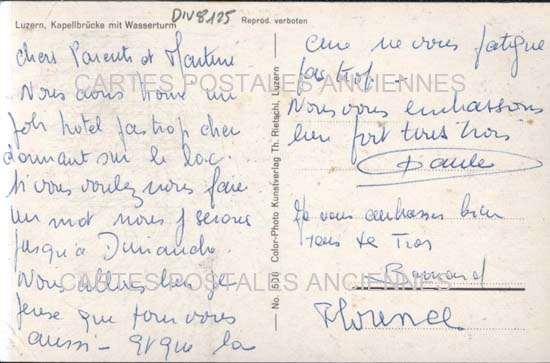 DIV8125
Luzern, Kapellbrücke mit Wasserturm
Reprod. verboten
chers Parents et Martine
Nous avons trouvé un
joli hotel pas trop cher
donnant sur le lac.
Si vous voulez nous faire
un mot nous y serons
jusqu'à Dimanche.
Nous allons bien je
pense que pour vous
aussi - et que la
cure ne vous fatigue
pas trop -
Nous vous embrassons
bien fort tous trois
Je vous embrasse bien
tous les Trois
Bernard
Florence
No. 508 Color-Photo Kunstverlag Th. Rietschi, Luzern
CARTES POSTALES ANCIENNES
CARTES POSTALES ANCIENNES